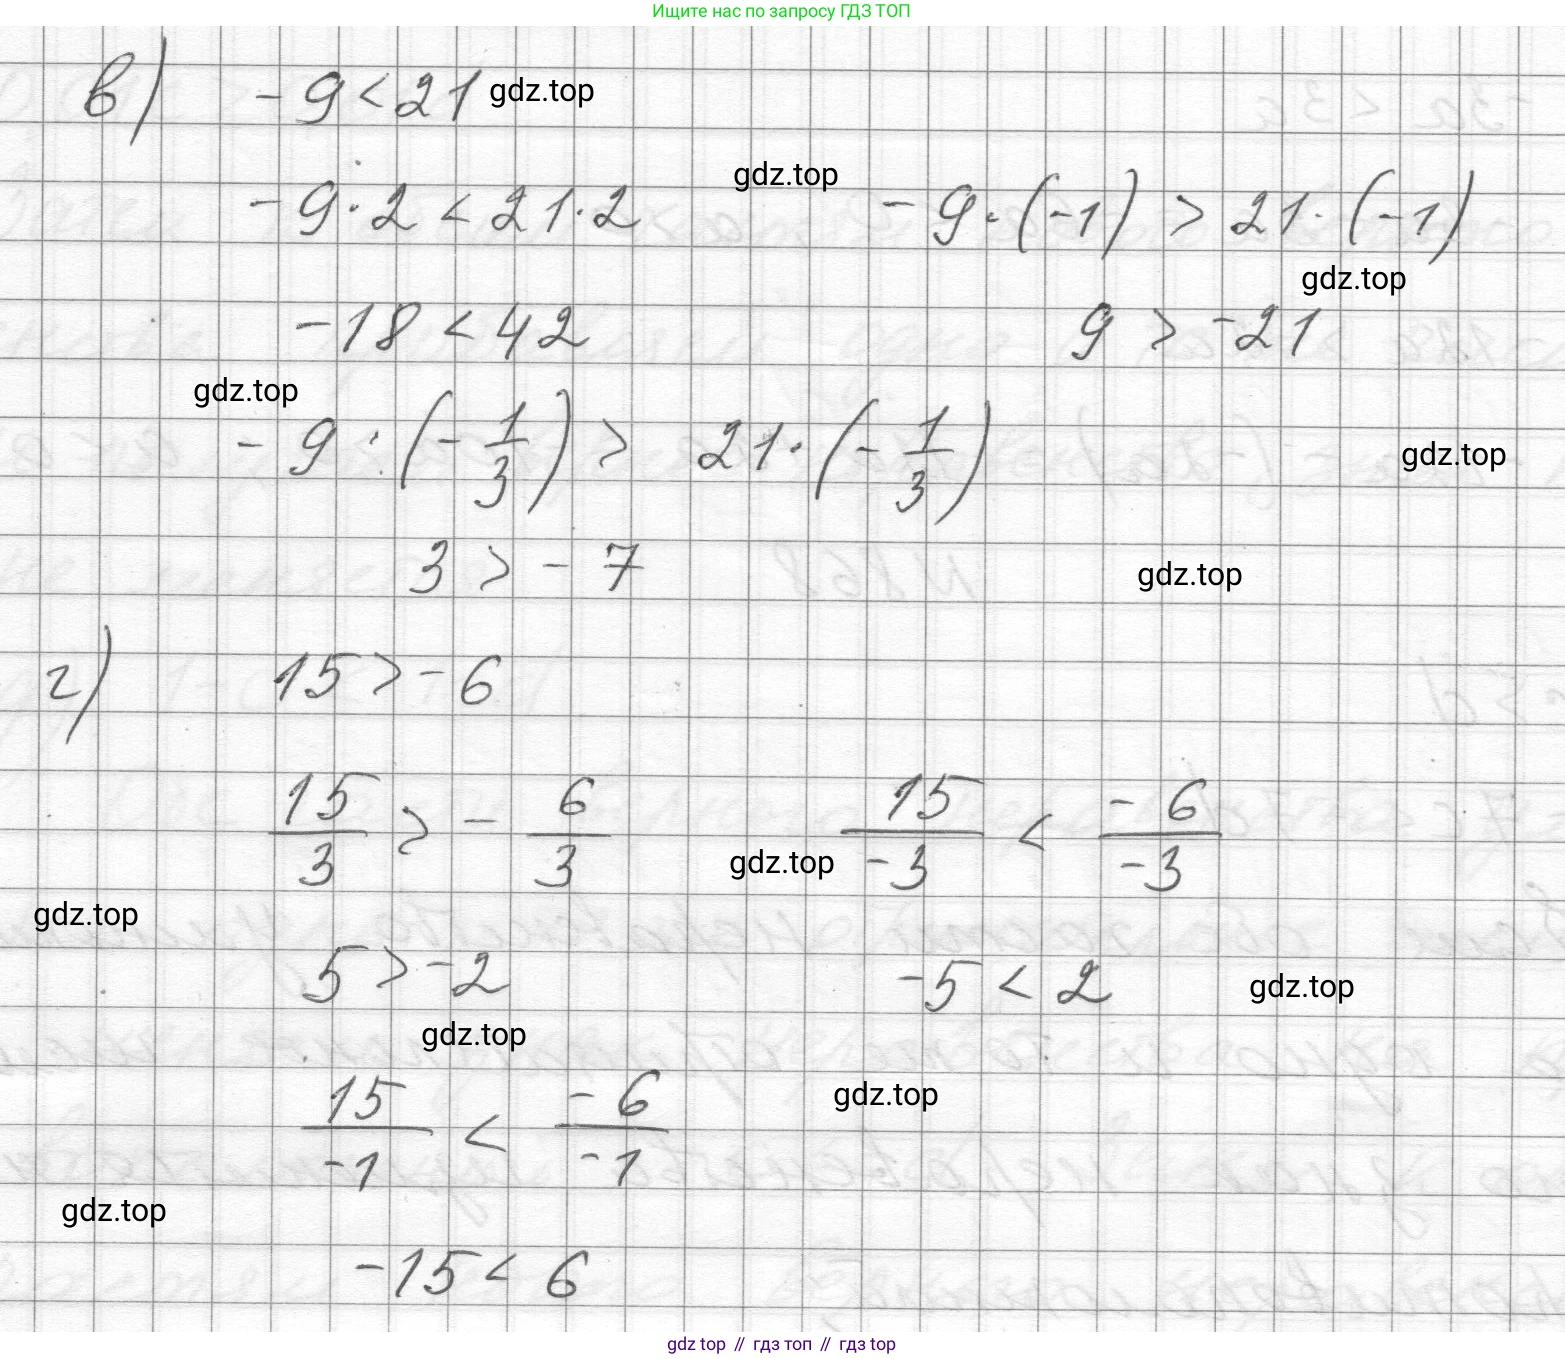 Ищите нас по запросу ГДЗ ТОП
в) -9 < 21 gdz.top
gdz.top
-9·2 < 21·2 -9·(-1) > 21·(-1)
gdz.top
-18 < 42 9 > -21
gdz.top
-9·(-1/3) > 21·(-1/3) gdz.top
3 > -7 gdz.top
г) 15 > -6
15/3 > -6/3 15/-3 < -6/-3
gdz.top
gdz.top
5 > -2 -5 < 2 gdz.top
gdz.top
15/-1 < -6/-1 gdz.top
gdz.top
-15 < 6
gdz top // гдз топ // гдз top